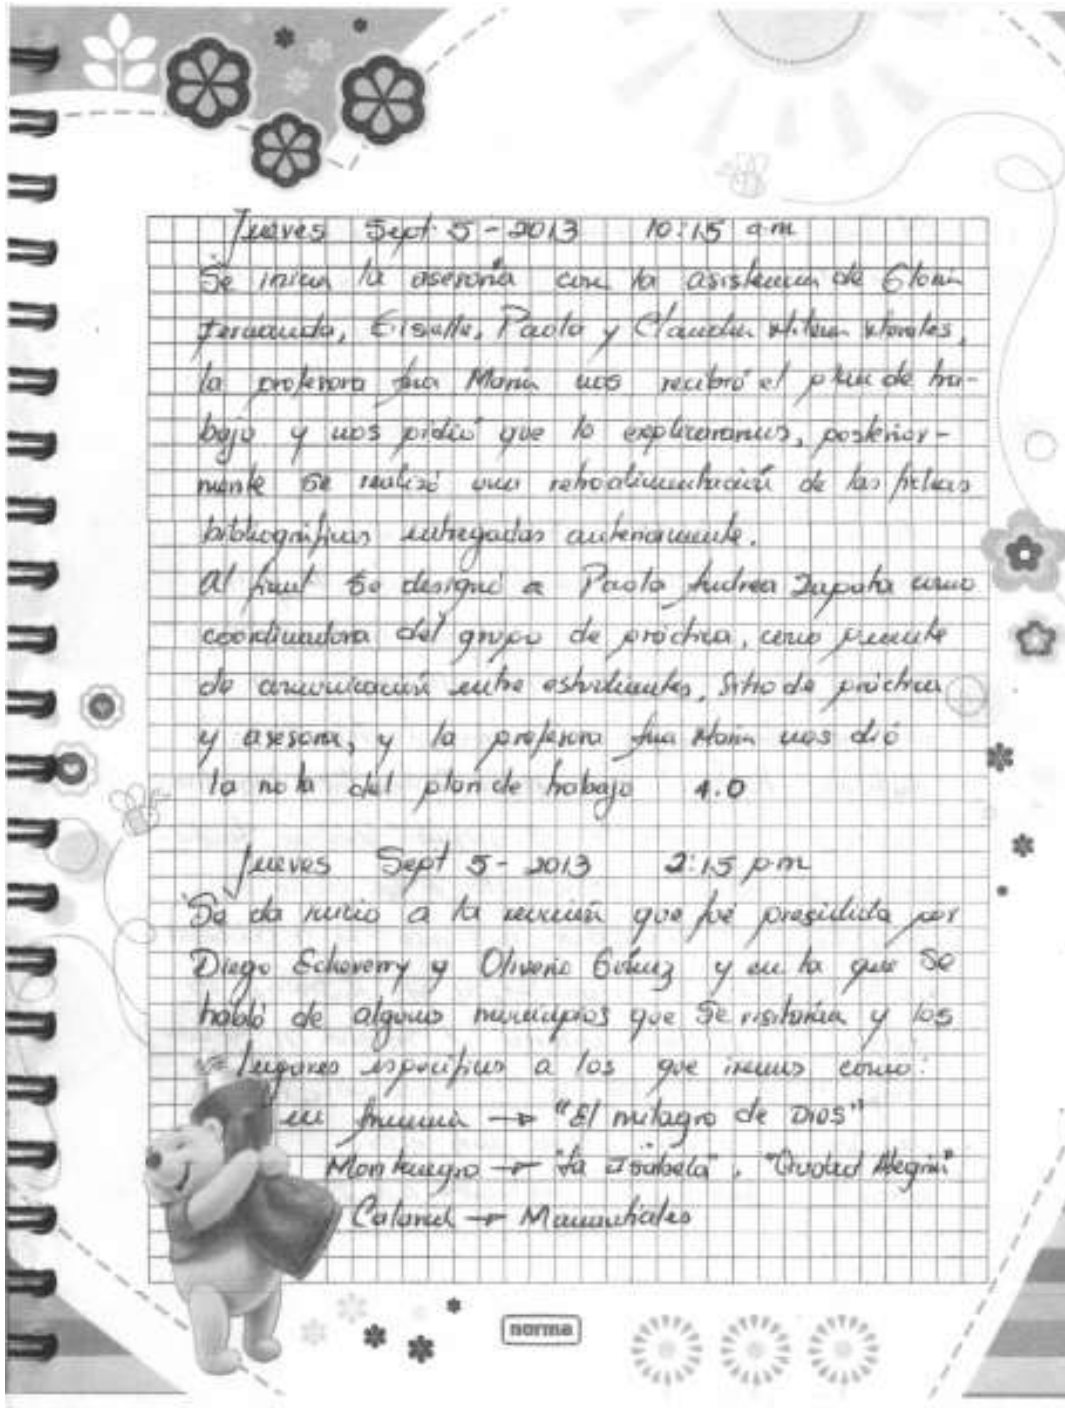 Jueves Sept 5-2013 10:15 a.m
Se inicia la asesoría con la asistencia de Gloria
Fernanda, Gisselle, Paola y Claudia Milena Morales,
la profesora Ana María nos recibió el plan de tra-
bajo y nos pidió que lo explicaramos, posterior-
mente se realizó una retroalimentación de las fichas
bibliográficas entregadas anteriormente.
Al final se designó a Paola Andrea Zapata como
coordinadora del grupo de práctica, como puente
de comunicación entre estudiantes, Sitio de práctica
y asesora, y la profesora Ana María nos dió
la nota del plan de trabajo 4.0
Jueves Sept 5-2013 2:15 p.m
Se da inicio a la reunión que fué presidida por
Diego Echeverry y Oliverio Gómez y en la que se
habló de algunos municipios que se visitarían y los
lugares específicos a los que iremos como:
en Armenia → "El milagro de Dios"
Montenegro → "La Isabela", "Ciudad Alegría"
Calarcá → Manantiales
norma